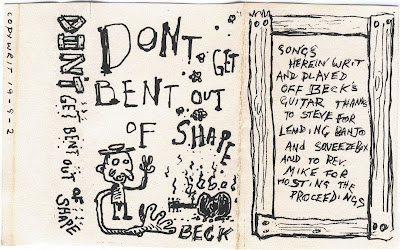 COPYWRIT 19-9-2
DON'T GET BENT OUT OF SHAPE
DONT GET
BENT OUT
OF SHAPE
BECK
SONGS
HEREIN WRIT
AND PLAYED
OFF BECK'S
GUITAR THANKS
TO STEVE FOR
LENDING BANJO
AND SQUEEZEBOX
AND TO REV.
MIKE FOR
HOSTING THE
PROCEEDINGS